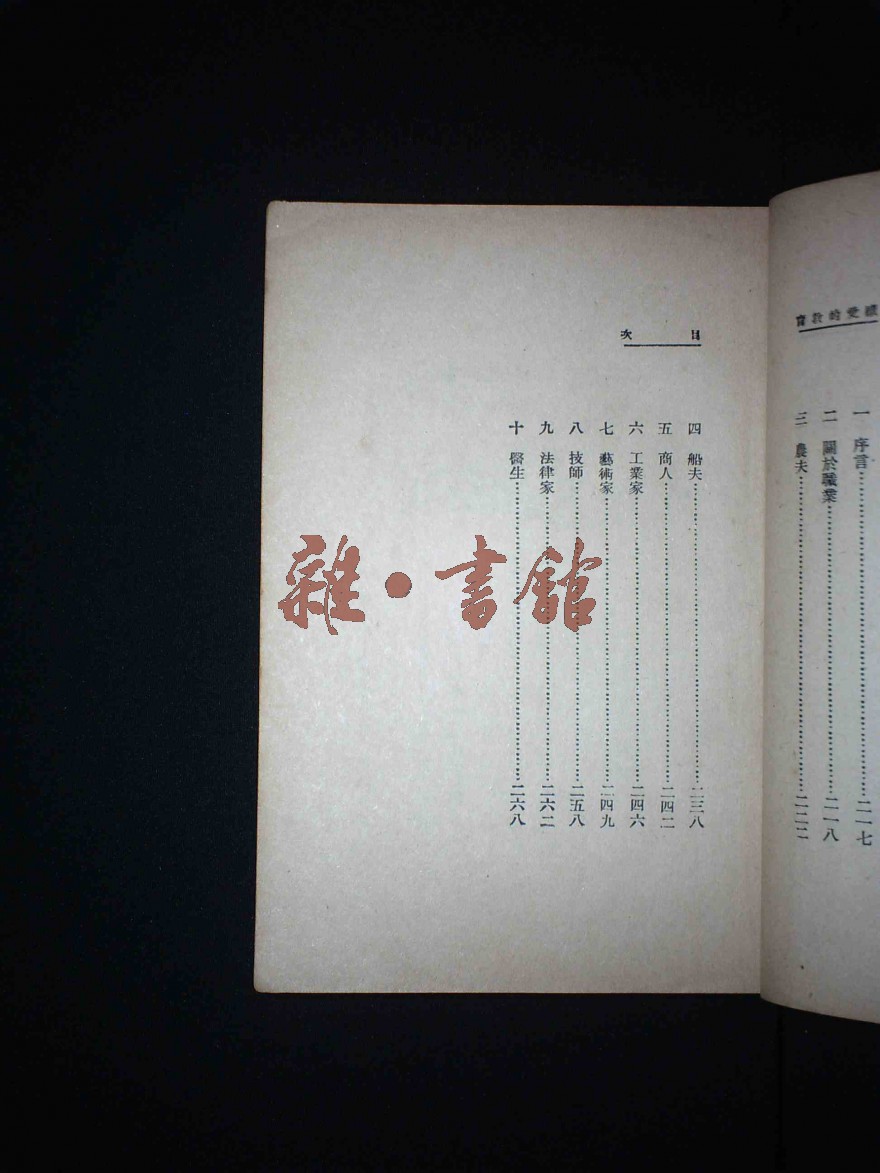 續愛的教育
一 序言……二一七
二 關於職業……二一八
三 農夫……二二二
目次
四 船夫……二三八
五 商人……二四二
六 工業家……二四六
七 藝術家……二四九
八 技師……二五八
九 法律家……二六二
十 醫生……二六八
雜·書館